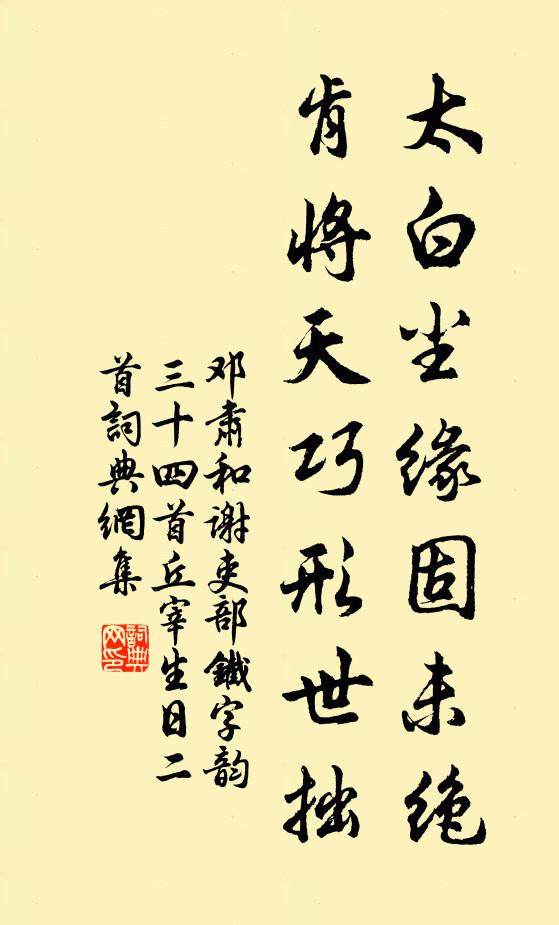 太白尘缘固未绝
肯将天巧形世拙
邓肃和谢吏部鐵字韵
三十四首丘宰生日二
首詞典網集
詞典网印